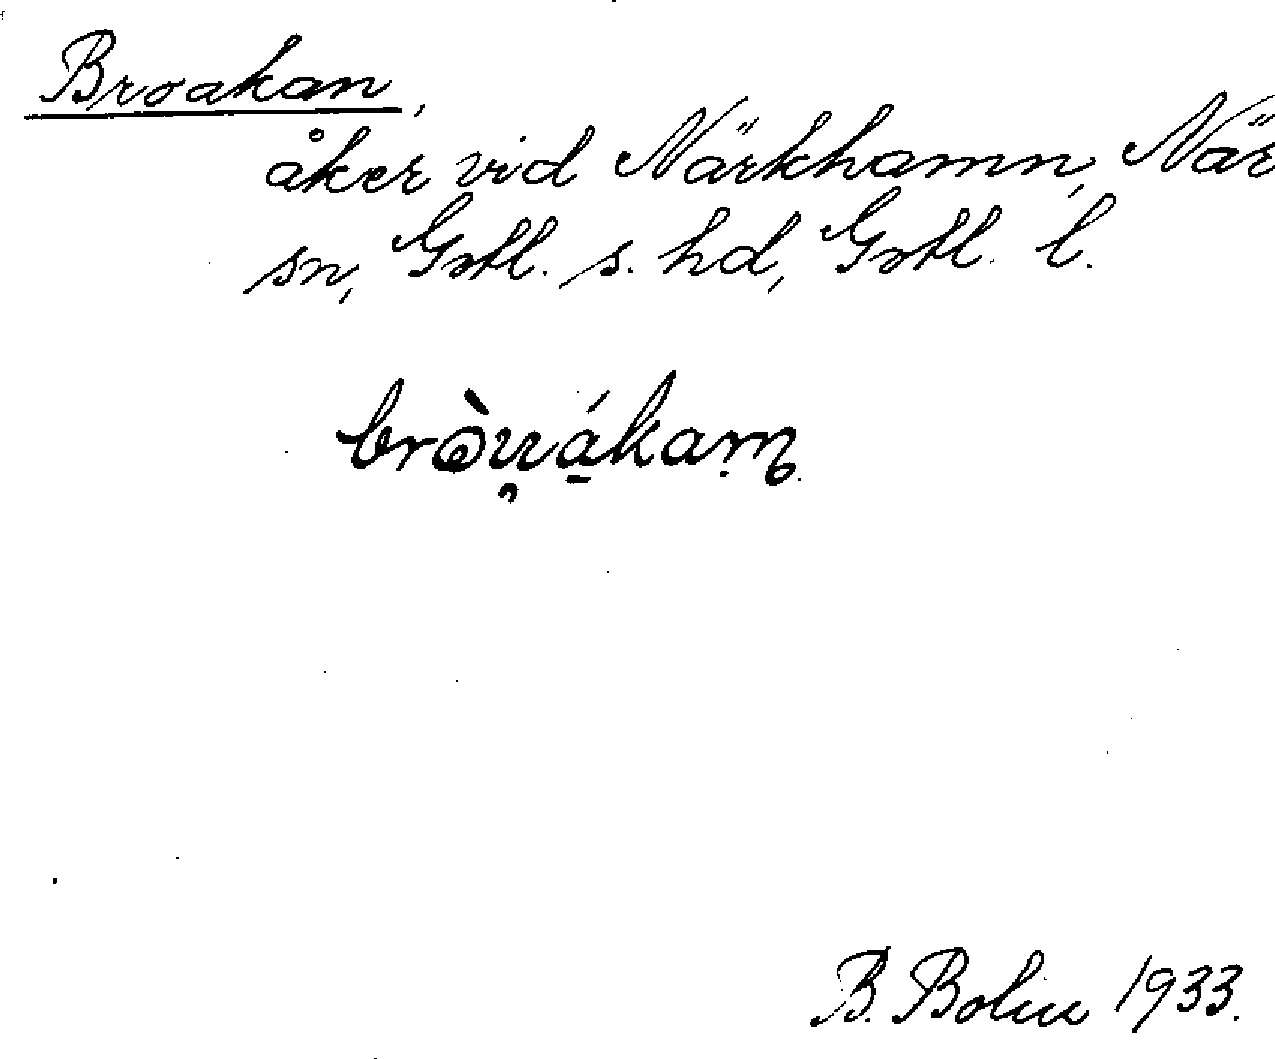 Broakan,
åker vid Närkhamn, När
sn, Gotl. s. hd, Gotl. l.
B. Bolin 1933.